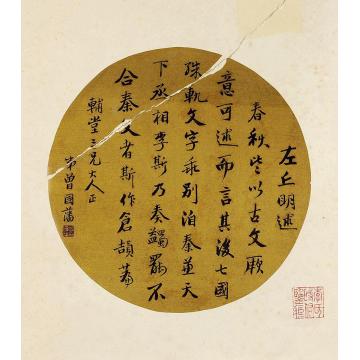 左丘明述
春秋皆以古文厥
意可述而言其後七國
殊軌文字乖別泊秦並天
下丞相李斯乃奏蠲罷不
合秦文者斯作倉頡篇
輔堂三兄大人正
弟曾國藩